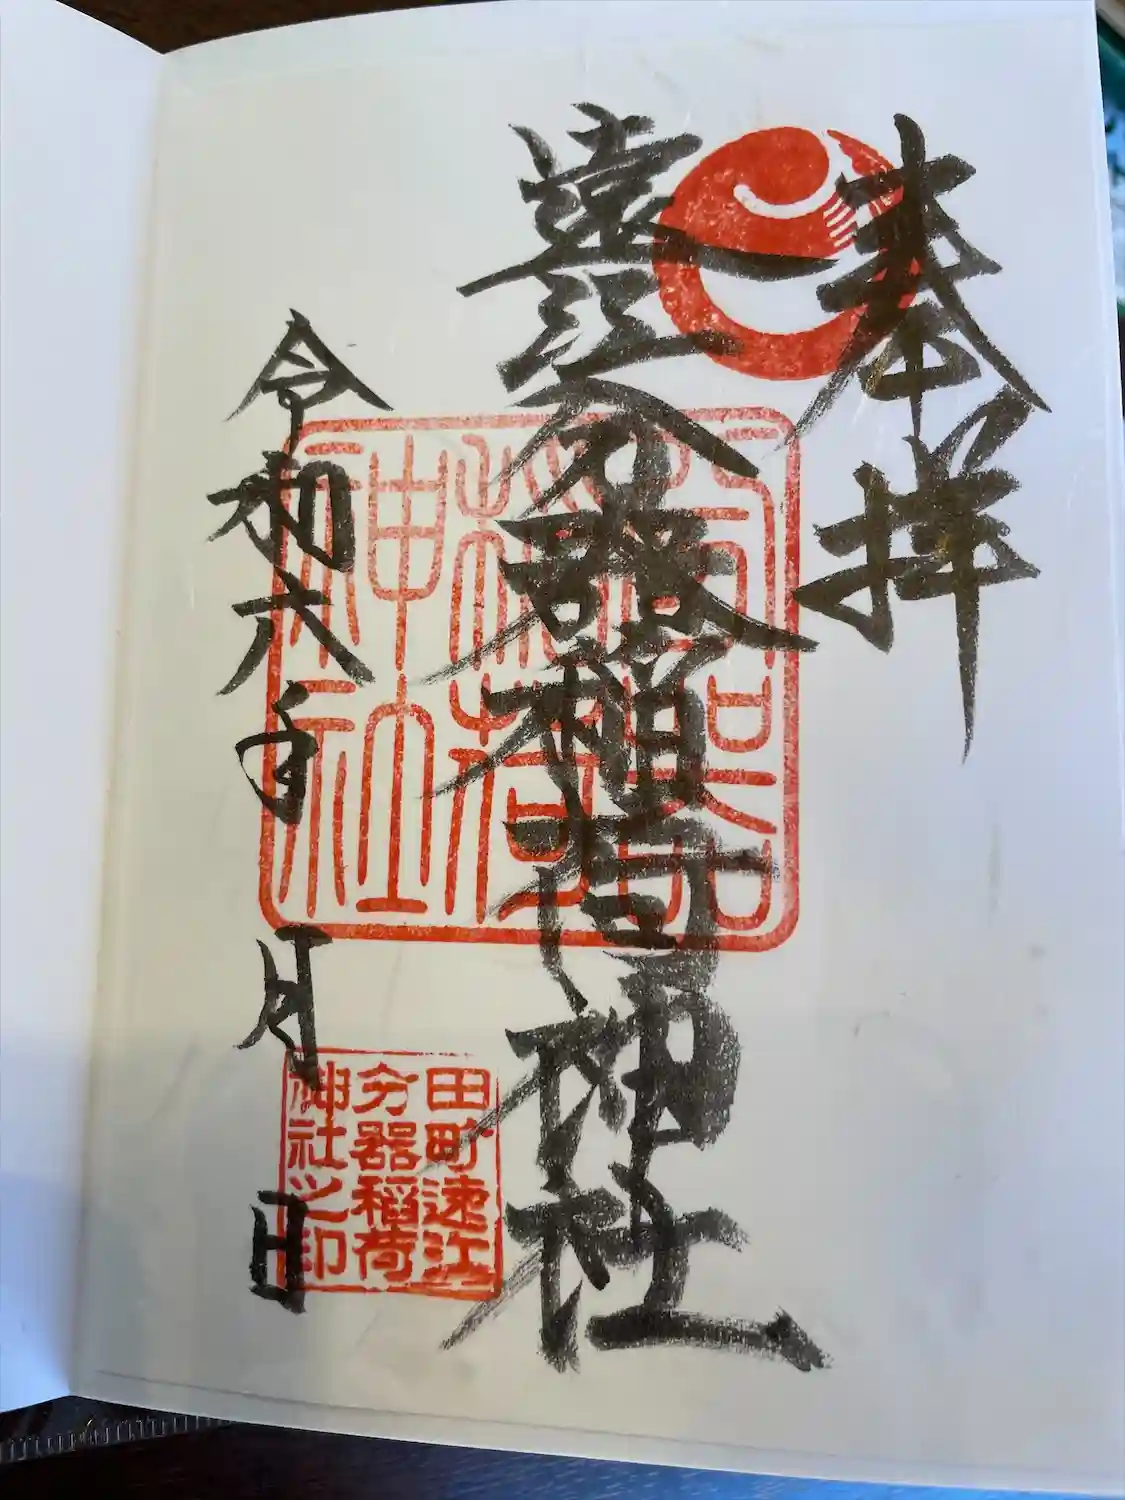 奉拝
分器稲荷神社
分器
稲荷
神社
令和六年 月 日
田町遠江
分器稲荷
神社之印